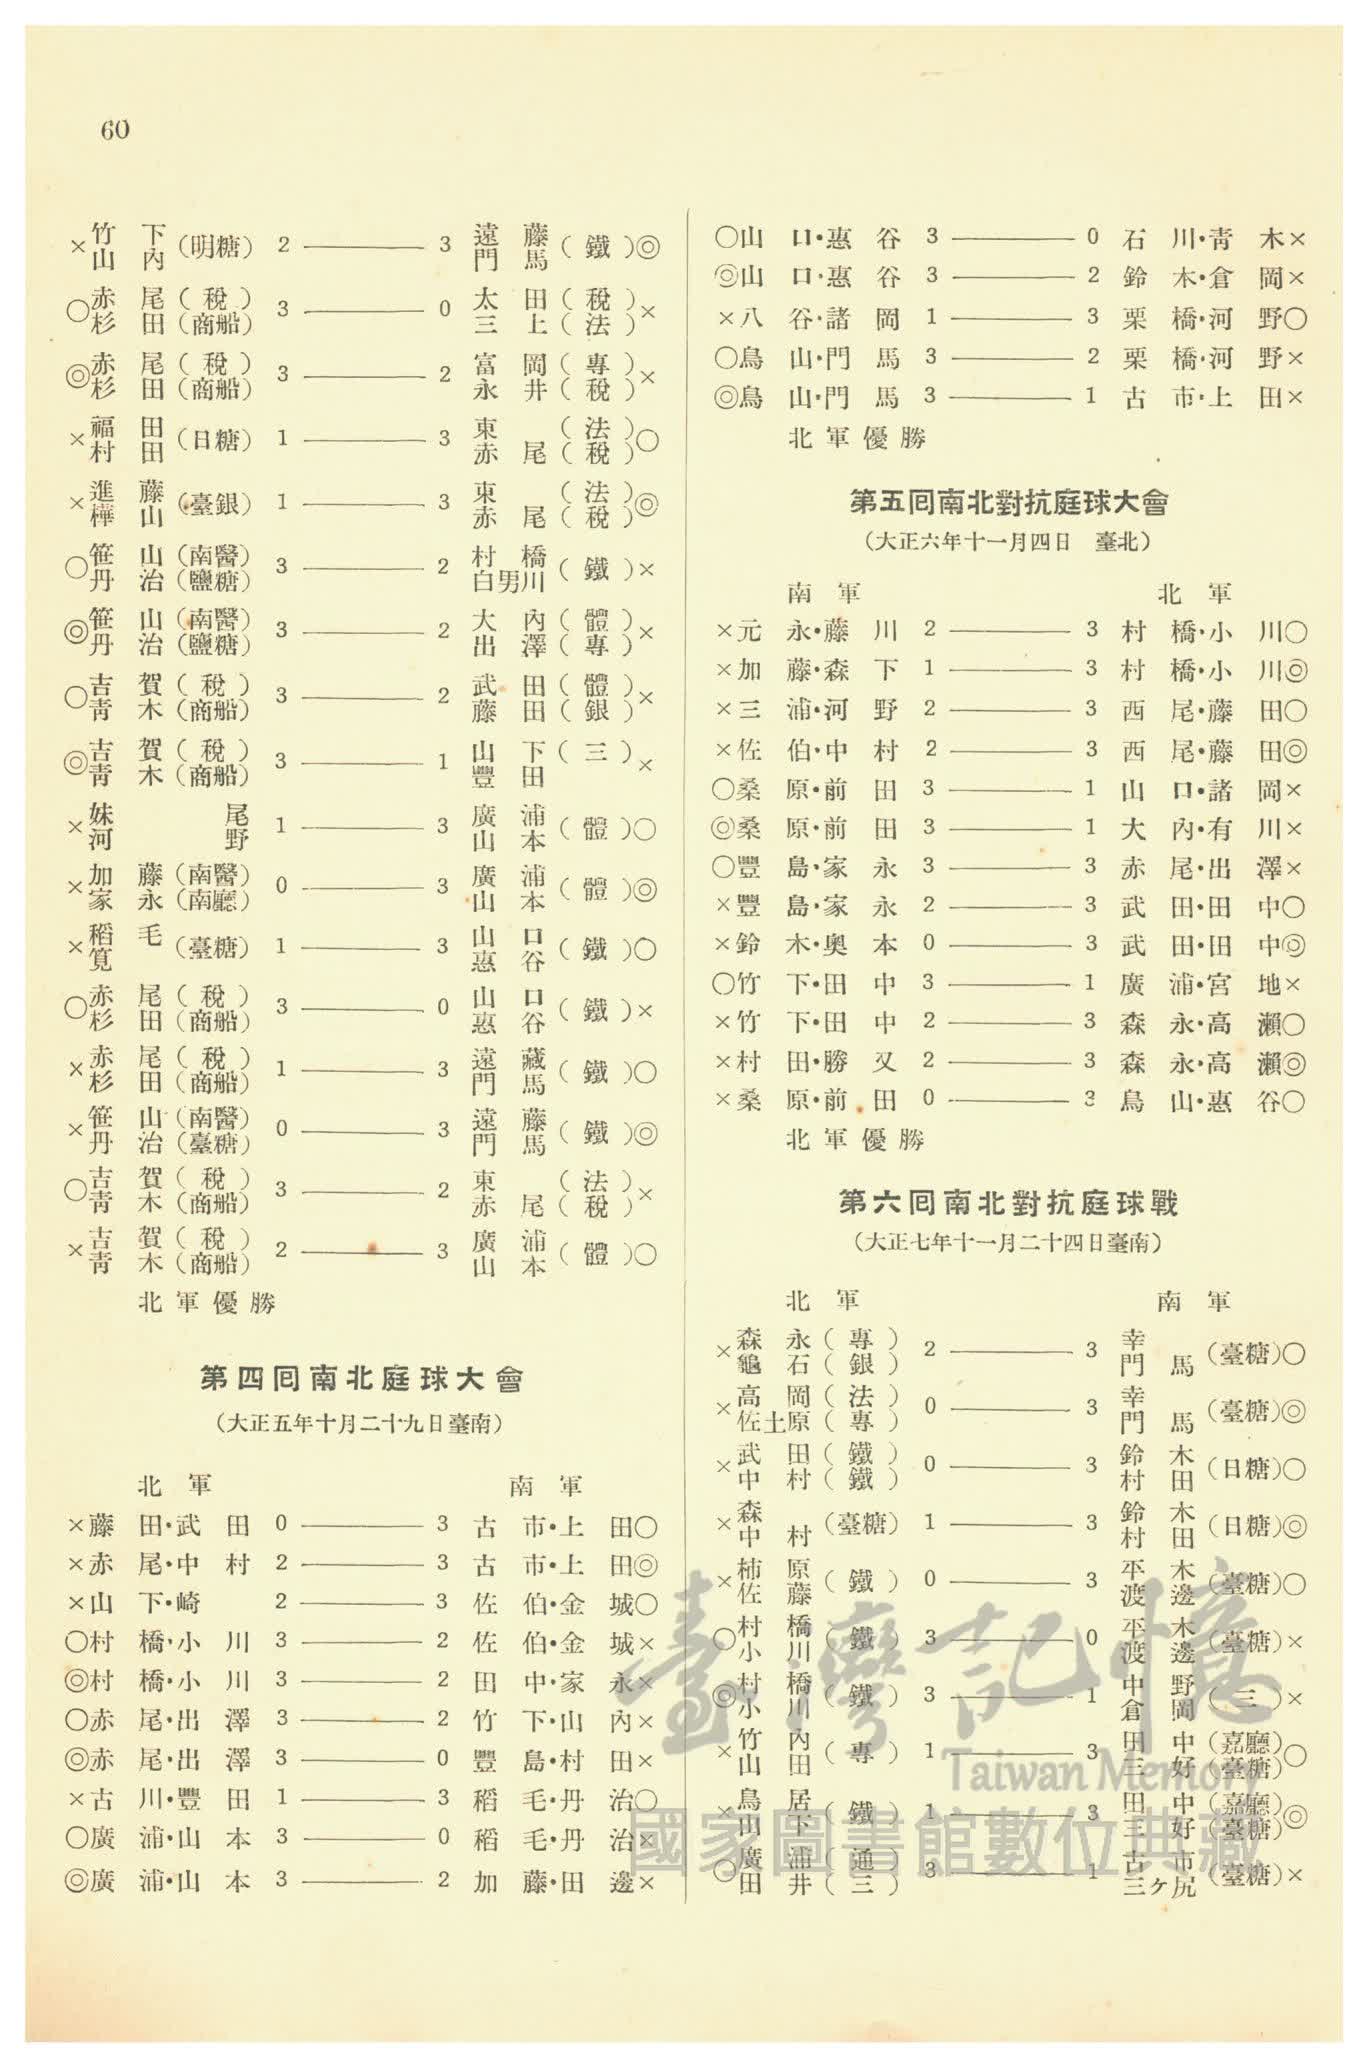 60
×竹下 山內(明糖) 2 ——— 3 遠藤 門馬(鐵)◎
○赤尾(稅) 杉田(商船) 3 ——— 0 太田(稅) 三上(法)×
◎赤尾(稅) 杉田(商船) 3 ——— 2 富岡(專) 永井(稅)×
×福田 村田(日糖) 1 ——— 3 東(法) 赤尾(稅)○
×進藤 樺山(臺銀) 1 ——— 3 東(法) 赤尾(稅)◎
○笹山(南醫) 丹治(鹽糖) 3 ——— 2 村橋 白男川(鐵)×
◎笹山(南醫) 丹治(鹽糖) 3 ——— 2 大內(體) 出澤(專)×
○吉賀(稅) 靑木(商船) 3 ——— 2 武田(體) 藤田(銀)×
◎吉賀(稅) 靑木(商船) 3 ——— 1 山下(三) 豐田×
×妹尾 河野 1 ——— 3 廣浦 山本(體)○
×加藤(南醫) 家永(南廳) 0 ——— 3 廣浦 山本(體)◎
×稻毛 筧(臺糖) 1 ——— 3 山口 惠谷(鐵)○
○赤尾(稅) 杉田(商船) 3 ——— 0 山口 惠谷(鐵)×
×赤尾(稅) 杉田(商船) 1 ——— 3 遠藏 門馬(鐵)○
×笹山(南醫) 丹治(臺糖) 0 ——— 3 遠藤 門馬(鐵)◎
○吉賀(稅) 靑木(商船) 3 ——— 2 東(法) 赤尾(稅)×
×吉賀(稅) 靑木(商船) 2 ——— 3 廣浦 山本(體)○
北軍優勝
第四回南北庭球大會
(大正五年十月二十九日臺南)
北軍 南軍
×藤田・武田 0 ——— 3 古市・上田○
×赤尾・中村 2 ——— 3 古市・上田◎
×山下・崎 2 ——— 3 佐伯・金城○
○村橋・小川 3 ——— 2 佐伯・金城×
◎村橋・小川 3 ——— 2 田中・家永×
○赤尾・出澤 3 ——— 2 竹下・山內×
◎赤尾・出澤 3 ——— 0 豐島・村田×
×古川・豐田 1 ——— 3 稻毛・丹治○
○廣浦・山本 3 ——— 0 稻毛・丹治×
◎廣浦・山本 3 ——— 2 加藤・田邊×
○山口・惠谷 3 ——— 0 石川・靑木×
◎山口・惠谷 3 ——— 2 鈴木・倉岡×
×八谷・諸岡 1 ——— 3 栗橋・河野○
○鳥山・門馬 3 ——— 2 栗橋・河野×
◎鳥山・門馬 3 ——— 1 古市・上田×
北軍優勝
第五回南北對抗庭球大會
(大正六年十一月四日 臺北)
南軍 北軍
×元永・藤川 2 ——— 3 村橋・小川○
×加藤・森下 1 ——— 3 村橋・小川◎
×三浦・河野 2 ——— 3 西尾・藤田○
×佐伯・中村 2 ——— 3 西尾・藤田◎
○桑原・前田 3 ——— 1 山口・諸岡×
◎桑原・前田 3 ——— 1 大內・有川×
○豐島・家永 3 ——— 3 赤尾・出澤×
×豐島・家永 2 ——— 3 武田・田中○
×鈴木・奧本 0 ——— 3 武田・田中◎
○竹下・田中 3 ——— 1 廣浦・宮地×
×竹下・田中 2 ——— 3 森永・高瀨○
×村田・勝又 2 ——— 3 森永・高瀨◎
×桑原・前田 0 ——— 3 鳥山・惠谷○
北軍優勝
第六回南北對抗庭球戰
(大正七年十一月二十四日臺南)
北軍 南軍
×森永(專) 龜石(銀) 2 ——— 3 幸 門馬(臺糖)○
×高岡(法) 佐土原(專) 0 ——— 3 幸 門馬(臺糖)◎
×武田(鐵) 中村(鐵) 0 ——— 3 鈴木 村田(日糖)○
×森 中村(臺糖) 1 ——— 3 鈴木 村田(日糖)◎
×柿原 佐藤(鐵) 0 ——— 3 平木 渡邊(臺糖)○
○村橋 小川(鐵) 3 ——— 0 平木 渡邊(臺糖)×
◎村橋 小川(鐵) 3 ——— 1 中野 倉岡(三)×
×竹內 山田(專) 1 ——— 3 田中(嘉廳) 三好(臺糖)○
×鳥居 山下(鐵) 1 ——— 3 田中(嘉廳) 三好(臺糖)◎
○廣浦(通) 田井(三) 3 ——— 1 古市 三ケ尻(臺糖)×
臺灣記憶
Taiwan Memory
國家圖書館數位典藏